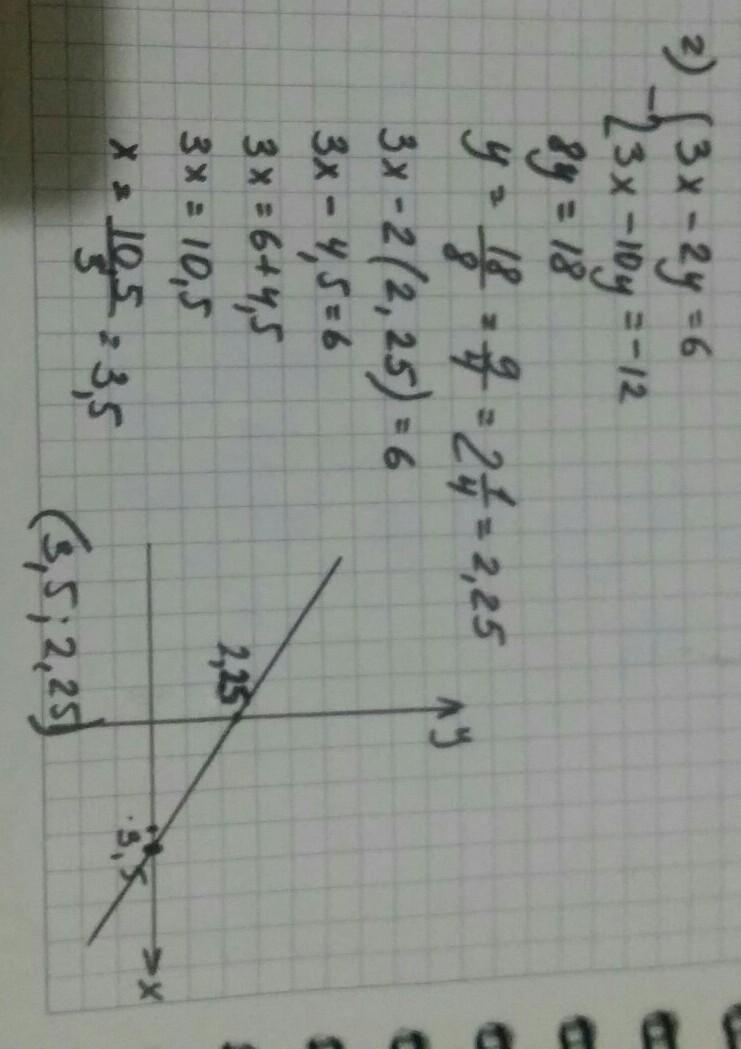 2) { 3x - 2y = 6
- { 3x - 10y = -12
8y = 18
y = 18/8 = 9/4 = 2 1/4 = 2,25
3x - 2(2,25) = 6
3x - 4,5 = 6
3x = 6 + 4,5
3x = 10,5
x = 10,5/3 = 3,5
y
2,25
3,5
x
(3,5; 2,25)